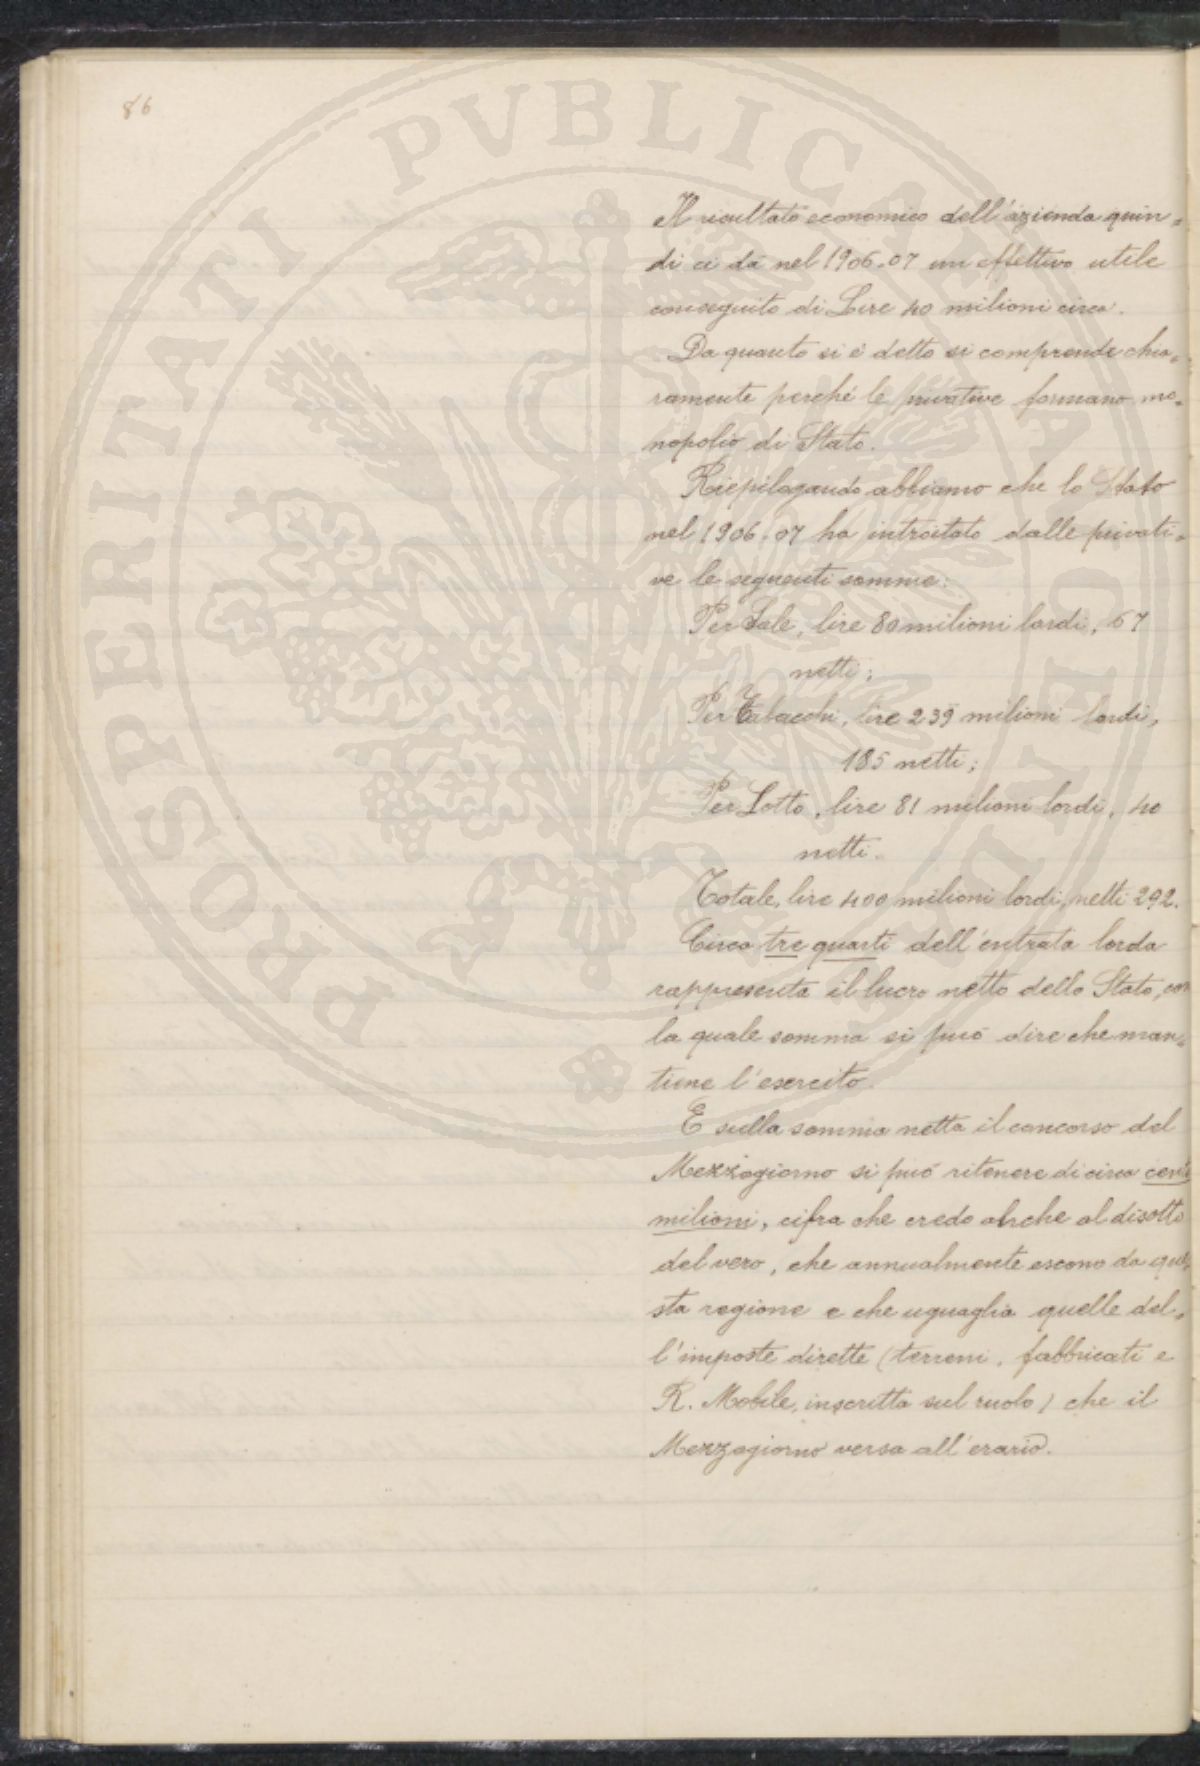 86
PROSPERITATI PVBLICAE AVGENDAE
Il risultato economico dell'azienda quin=
di ci dà nel 1906-07 un effettivo utile
conseguito di Lire 40 milioni circa.
Da quanto si è detto si comprende chia=
ramente perché le privative formano mo=
nopolio di Stato.
Riepilogando abbiamo che lo Stato
nel 1906-07 ha introitato dalle privati=
ve le seguenti somme:
Per Sale, lire 80 milioni lordi, 67
netti;
Per Tabacchi, lire 239 milioni lordi,
185 netti;
Per Lotto, lire 81 milioni lordi, 40
netti.
Totale, lire 400 milioni lordi, netti 292.
Circa tre quarti dell'entrata lorda
rappresenta il lucro netto dello Stato, con
la quale somma si può dire che man=
tiene l'esercito.
E sulla somma netta il concorso del
Mezzogiorno si può ritenere di circa cento
milioni, cifra che credo anche al disotto
del vero, che annualmente escono da que=
sta regione e che uguaglia quelle del=
l'imposte dirette (terreni, fabbricati e
R. Mobile, inscritta sul ruolo) che il
Mezzogiorno versa all'erario.